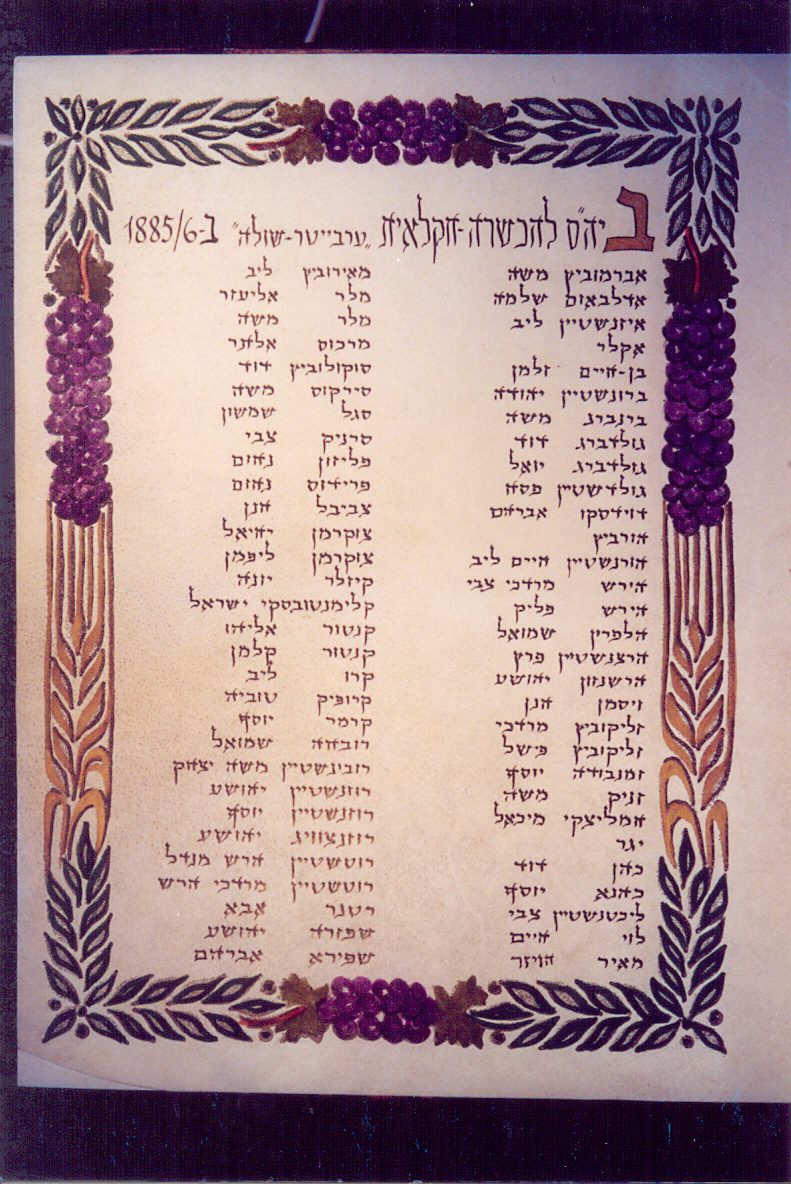 ביה"ס להכשרה-חקלאית "ערבייטר-שולה" ב-1885/6
אברמוביץ משה
אדלבאום שלמה
איזנשטיין ליב
אקלר
בן-חיים זלמן
ברונשטיין יהודה
בינברג משה
גולדברג דוד
גולדברג יואל
גולדשטיין פסח
דוידסקו אברהם
הורביץ
הורנשטיין חיים ליב
הירש מרדכי צבי
הירש פליק
הלפרין שמואל
הרצנשטיין פרץ
הרשנזון יהושע
ויסמן חנן
זליקוביץ מרדכי
זליקוביץ פישל
זמנבודה יוסף
זניק משה
חמליצקי מיכאל
יגר
כהן דוד
כהנא יוסף
ליכטנשטיין צבי
לוי חיים
מאיר הויזר
מאירוביץ ליב
מלר אליעזר
מלר משה
מרכוס אלחנר
סוקולוביץ דוד
סירקוס משה
סגל שמשון
סרניק צבי
פליזון נחום
פרידוס נחום
צביבל חנן
צוקרמן יחיאל
צוקרמן ליפמן
קיזלר יונה
קלימנטובסקי ישראל
קנטור אליהו
קנטור קלמן
קרו ליב
קרופיק טוביה
קרמר יוסף
רובחה שמואל
רובינשטיין משה יצחק
רוזנשטיין יהושע
רוזנשטיין יוסף
רוזנצוויג יהושע
רוטשטיין הרש מנדל
רוטשטיין מרדכי הרש
רטנר אבא
שפורה יהושע
שפירא אברהם